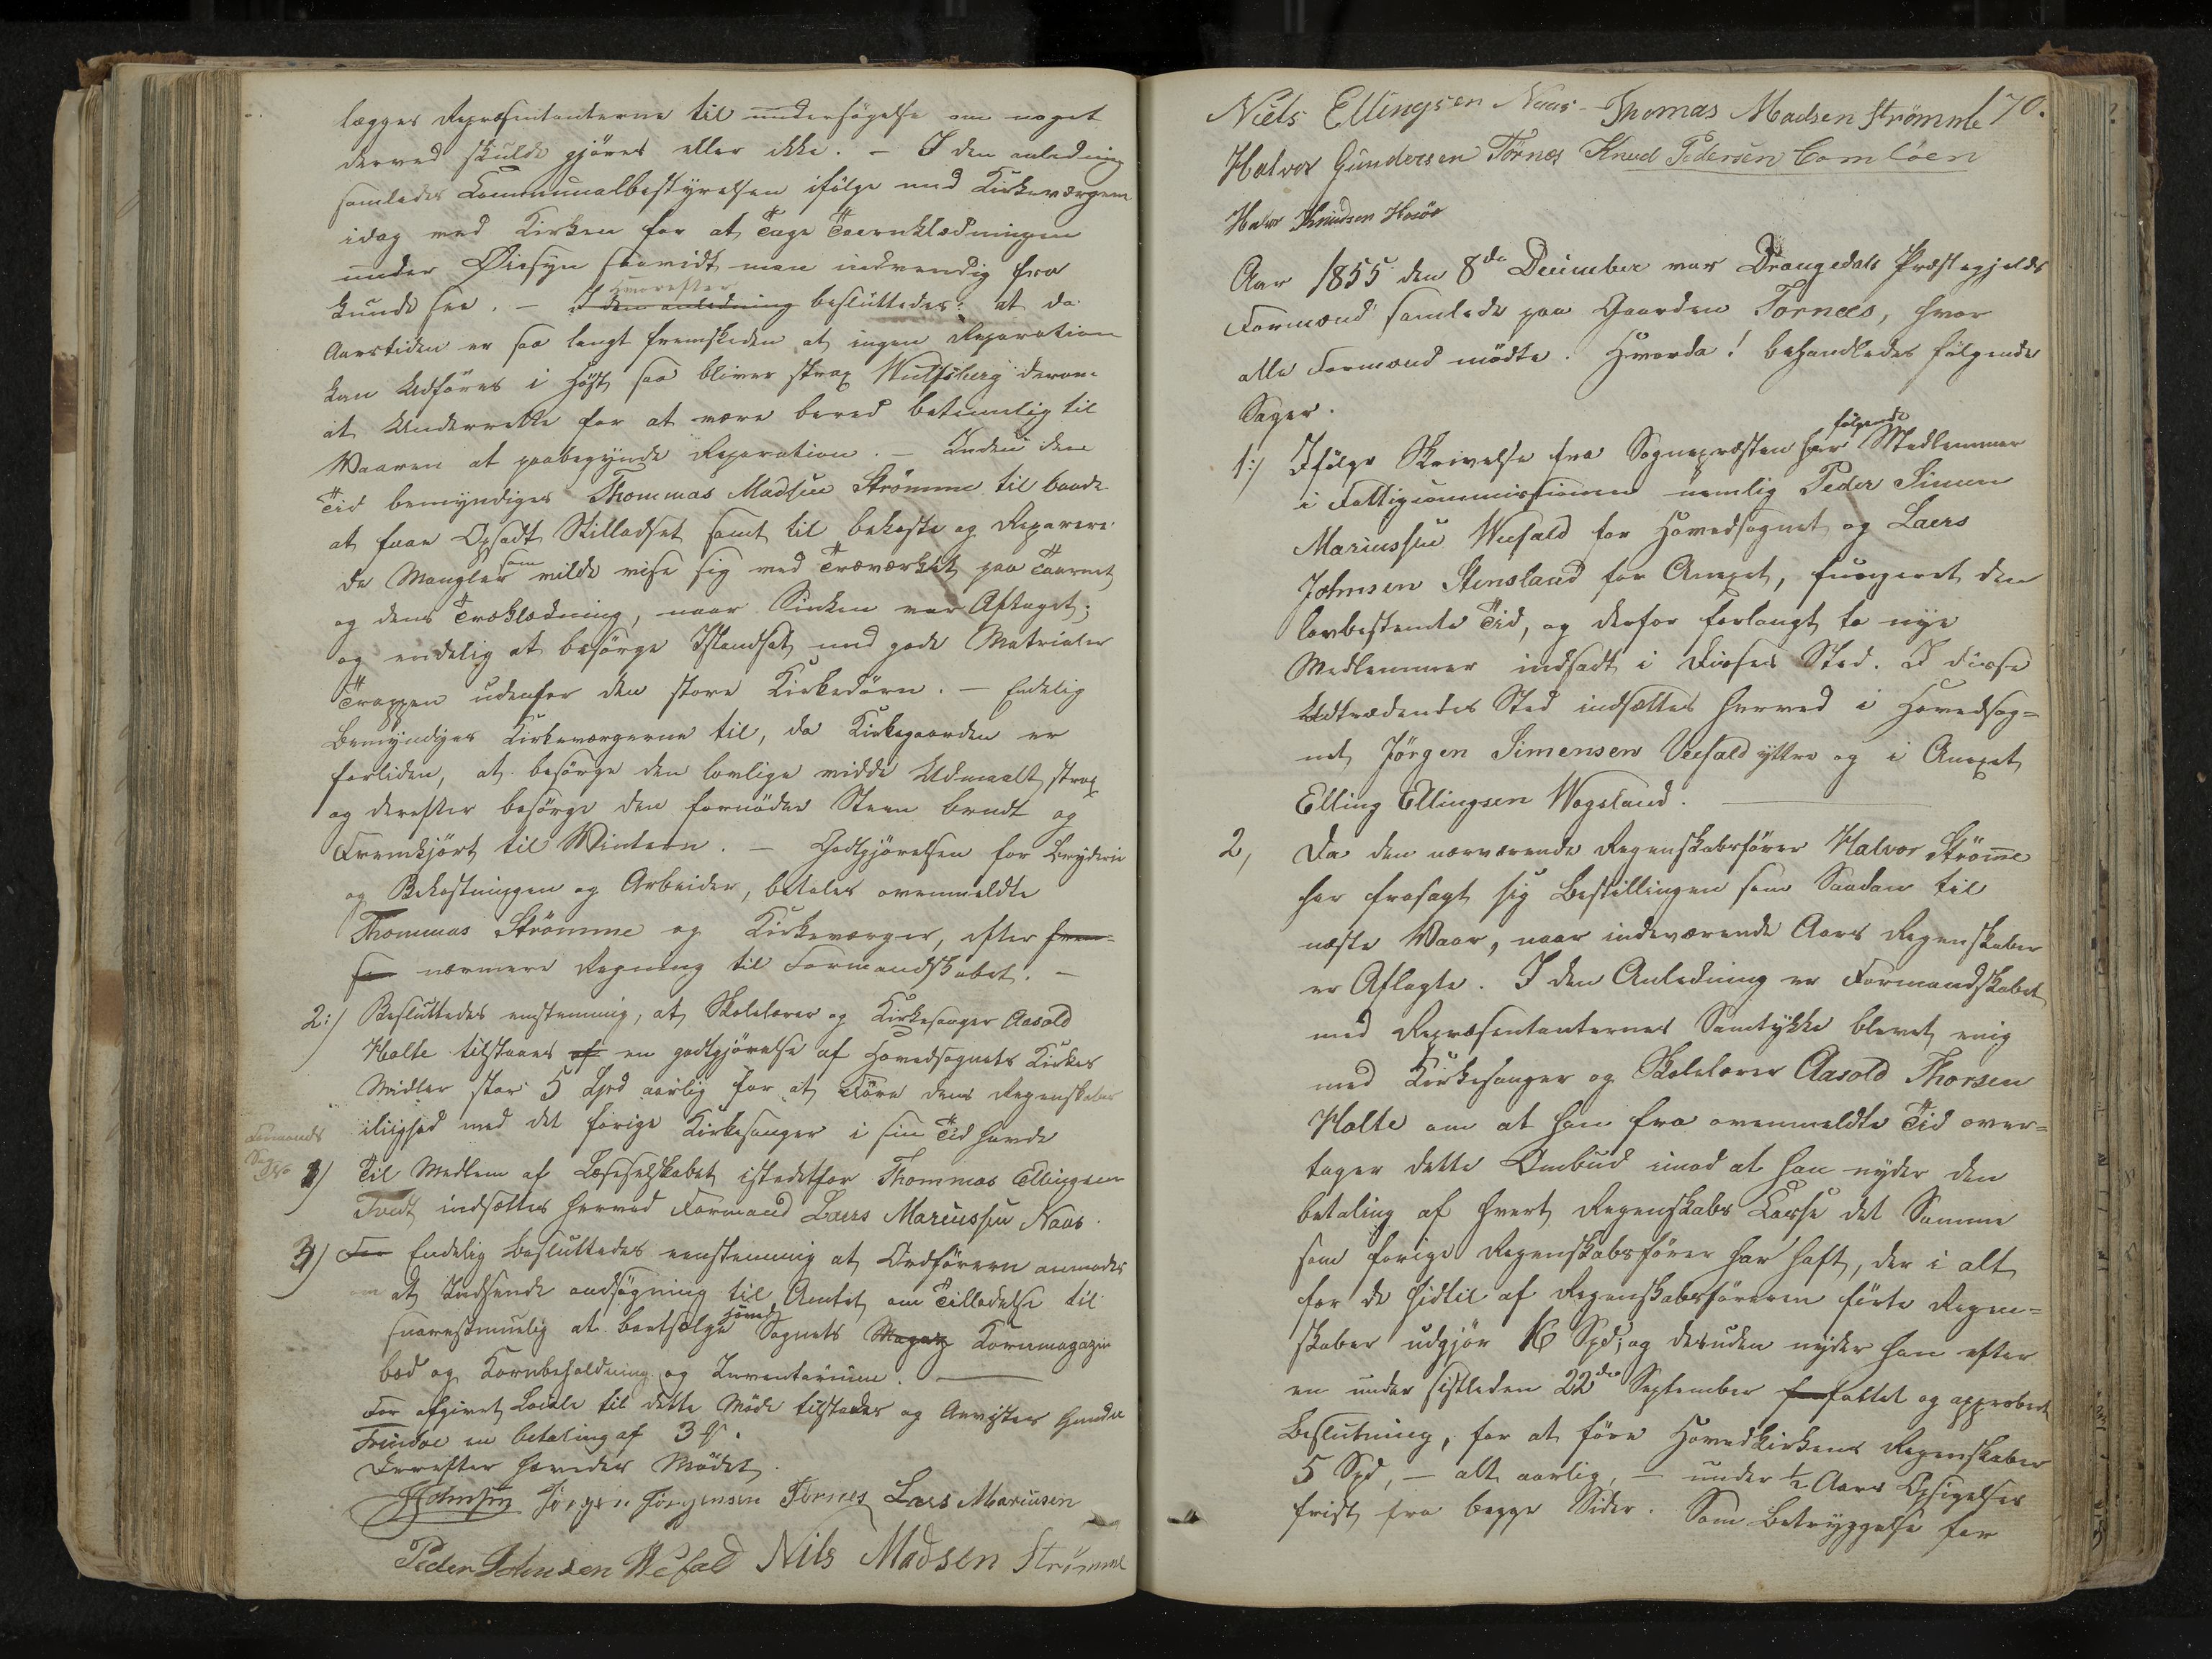 lægges Repræsentanterne til undersøgelse om noget
derved skulde gjøres eller ikke. — I den anledning
samledes Communalbestyrelsen ifølge med Kirkeværgerne
idag ved Kirken for at Tage Taarnklædningen
under Øiesyn saavidt man indvendig fra
kunde see. — I den anledning hvorefter besluttedes: at da
Aarstiden er saa langt fremskeden at ingen Reparation
kan Udføres i Høst saa bliver strax Wulfsberg derom
at Underrette for at være bered betimmelig til
Vaaren at paabegynde Reparation. — Inden den
Tid bemyndiges Thommas Madsen Strømme til baade
at faae Opsadt Stilladset samt til bekoste og Reparere
de Mangler som vilde vise sig ved Træværket paa Taarnet
og dens Træklædning, naar Sinken var Aftaget;
og endelig at besørge Istandsat med gode Matrialer
Trappen udenfor den store Kirkedørn. — Endelig
Bemyndiges Kirkeværgerne til, da Kirkegaarden er
forliden, at besørge den lovlige vidde Udmaalt strax
og derefter besørge den fornødne Steen brudt og
Fremkjørt til Vintern. — Godtgjørelsen for Bryderie
og Bekostningen og Arbeider, betales ovenmeldte
Thommas Strømme og Kirkeværger, efter frem-
nærmere Regning til Formandskabet. —
2:) Besluttedes enstemmig, at Skolelærer og Kirkesanger Aasold
Holte tilstaaes af en godtgjørelse af Hovedsognets Kirkes
Midler stor 5 Spd aarlig for at Føre dens Regnskaber
iliighed med det forige Kirkesanger i sin Tid havde
Formands
Sag
3) Til Medlem af Læseselskabet istedetfor Thommas Ellingsen
Tvedt indsættes herved Formand Laers Mariussen Naas.
4) For Endelig besluttedes eenstemmig at Ordføreren anmodes
om at Indsende andsøgning til Amtet om Tilladelse til
snarestmuelig at bortsælge Hoved Sognets Magaz Kornmagazin
bod og Kornbeholdning og Inventarium. —
For afgivet Locale til dette Møde tilstaaes og Anvistes Gunder
en betaling af 3
Derefter hævedes Mødet.
Johnsen Jørgen Jørgensen Törnes Lars Mariusen
Peder Johnsen Wefald Nils Madsen Strømme
70.
Niels Ellingsen Naas - Thomas Madsen Strømme
Halvor Gundersen Törnes Knud Pedersen Bomløen
Knudsen
Aar 1855 den 8de December var Drangedals Præstegjelds
Formænd samlede paa Gaarden Tornæs, hvor
alle Formænd mødte. Hvorda! behandledes følgende
Sager.
1:) Ifølge Skrivelse fra Sognepræsten har følgende Medlemmer
i Fattigcommissionen nemlig Peder Simen
Mariussen Weefald for Hovedsognet og Laers
Johnsen Stensland for Anexet, fungeret den
lovbestemte Tid, og derfor forlangt to nye
Medlemmer indsadt i Disses Sted. I disse
Udtrædendes Sted indsættes herved i Hovedsog=
net Jörgen Simensen Veefald yttre og i Anexet
Elling Ellingsen Wogsland. —
2, Da den nærværende Regnskabsfører Halvor Strømme
har frasagt sig Bestillingen som Saadan til
næste Vaar, naar indeværende Aars Regnskaber
er Aflagte. I den Anledning er Formandskabet
med Repræsentanternes Samtykke blevet enig
med Kirkesanger og Skolelærer Aasold Thorsen
Holte om at han fra ovenmeldte Tid over=
tager dette Ombud imod at han nyder den
betaling af hvert Regnskabs Kasse det Samme
som forige Regnskabsfører har haft, der i alt
for de hidtil af Regnskabsføreren førte Regn=
skaber udgjør 16 Spd; og desuden nyder han efter
en under sistleden 22de September f fattet og approberet
Beslutning, for at føre Hovedkirkens Regnskaber
5 Spd, — alt aarlig, — under ½ Aars Opsigelses
frist fra begge Sider. Som Betryggelse for